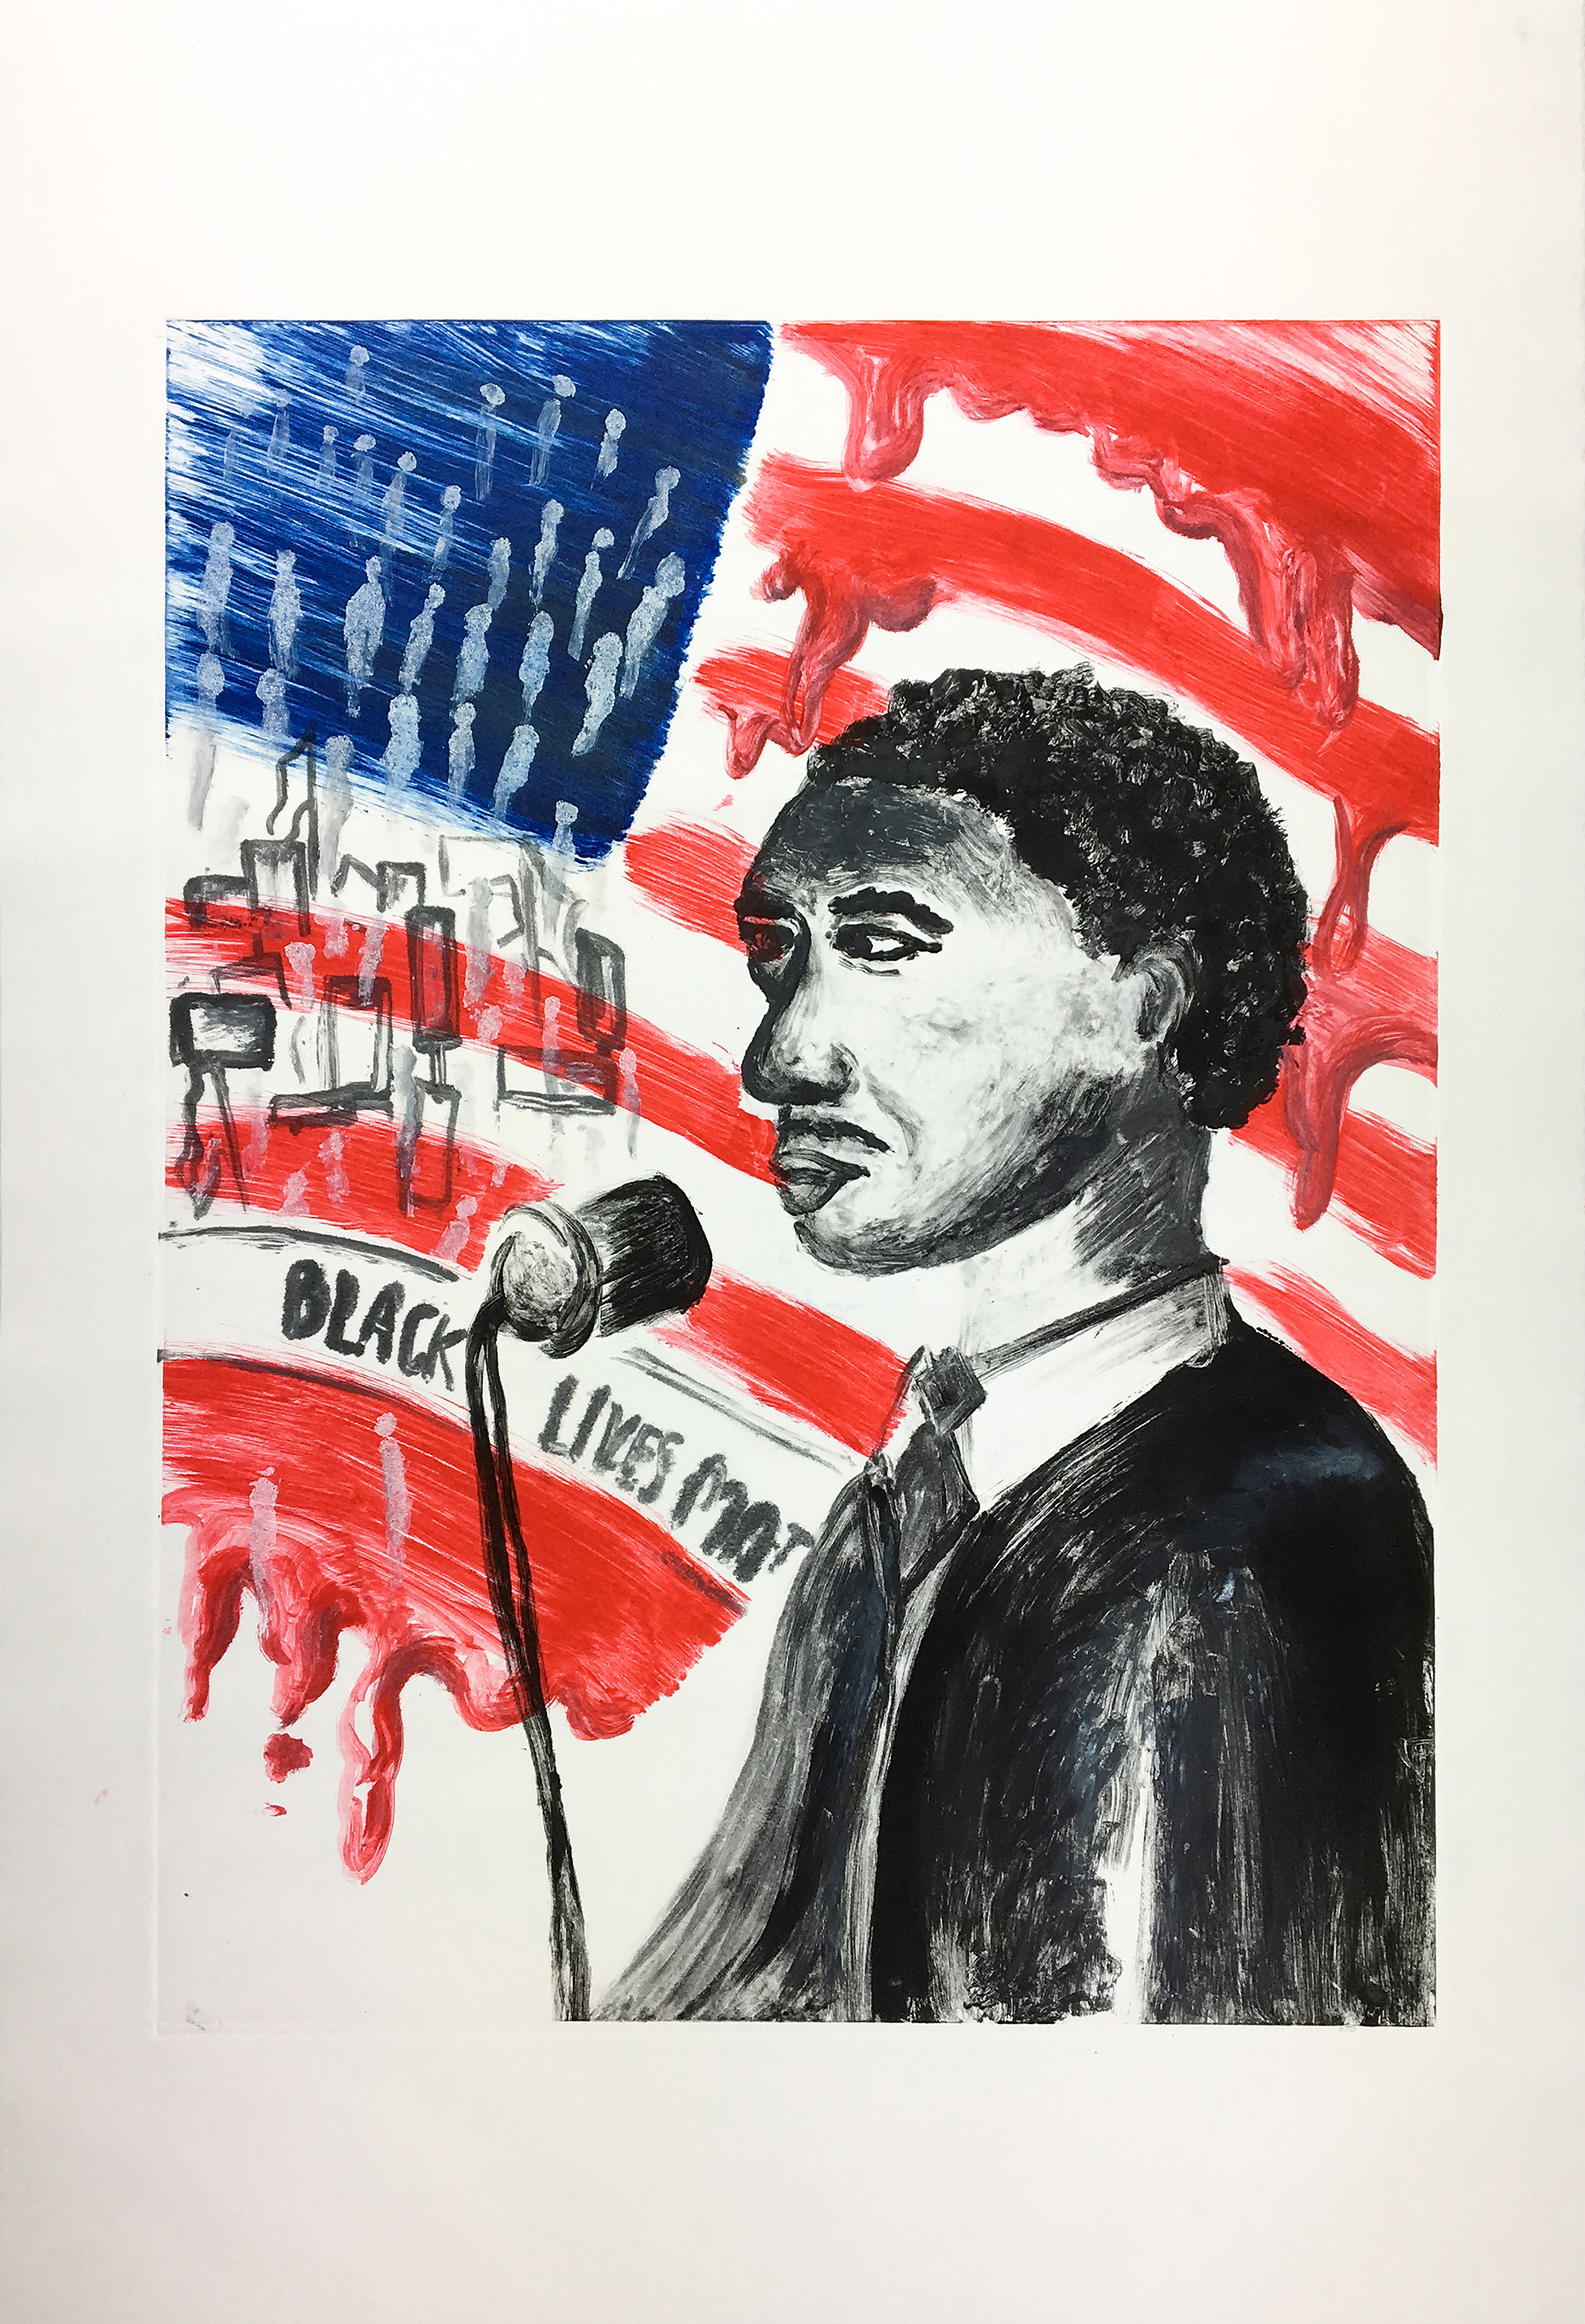 BLACK LIVES MAT